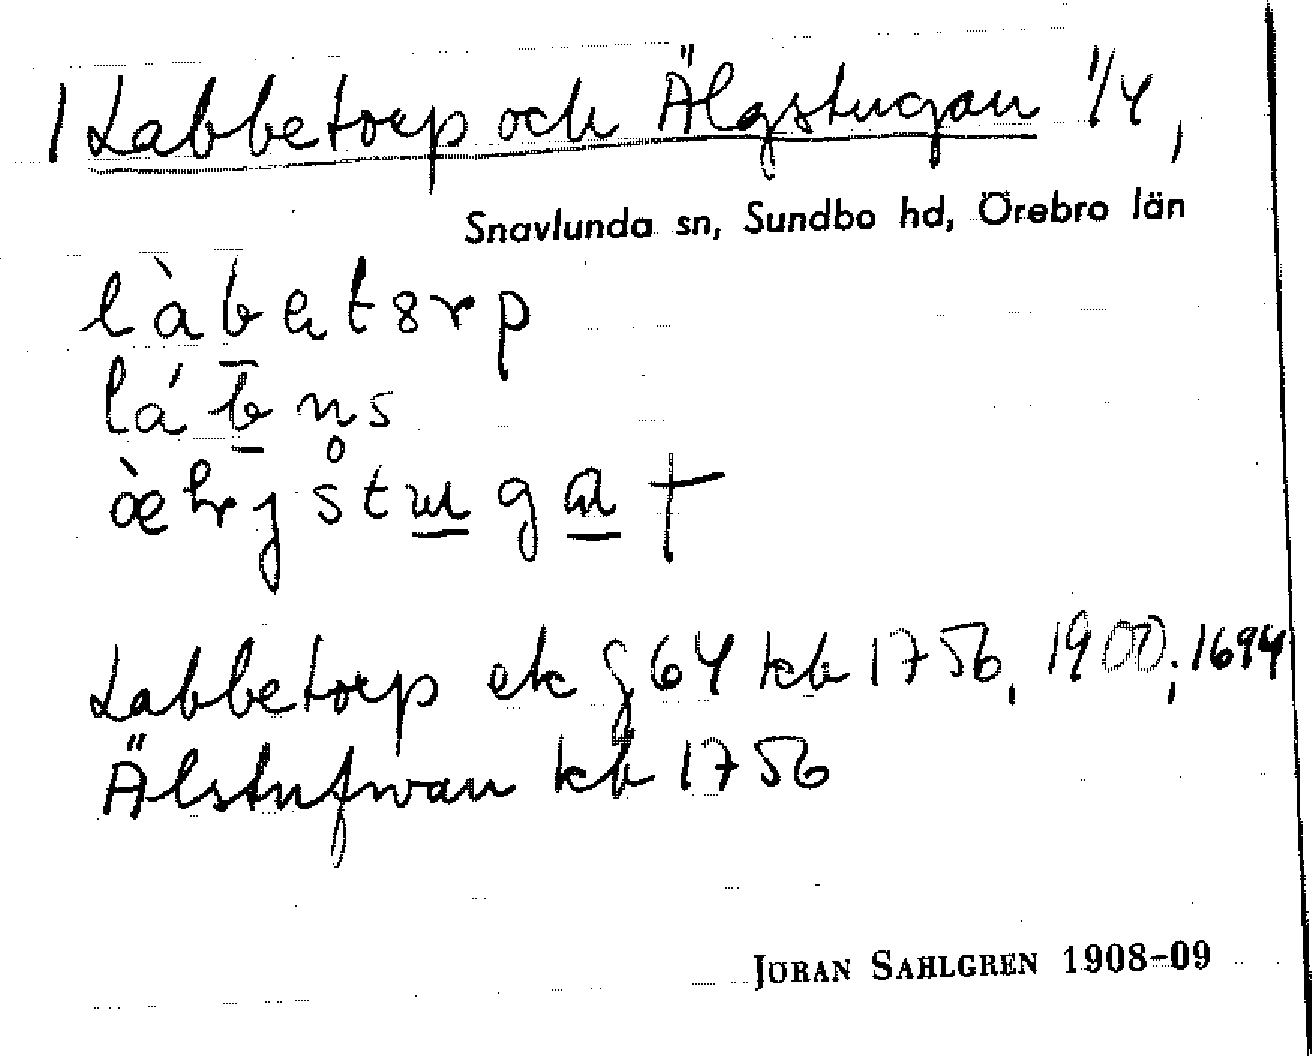 1 Labbetorp och Älgstugan 1/4,
Snavlunda sn, Sundbo hd, Örebro län
Labbetorp ek § 64 kb 1756, 1900; 1694
Älstufwan kb 1756
JÖRAN SAHLGREN 1908–09